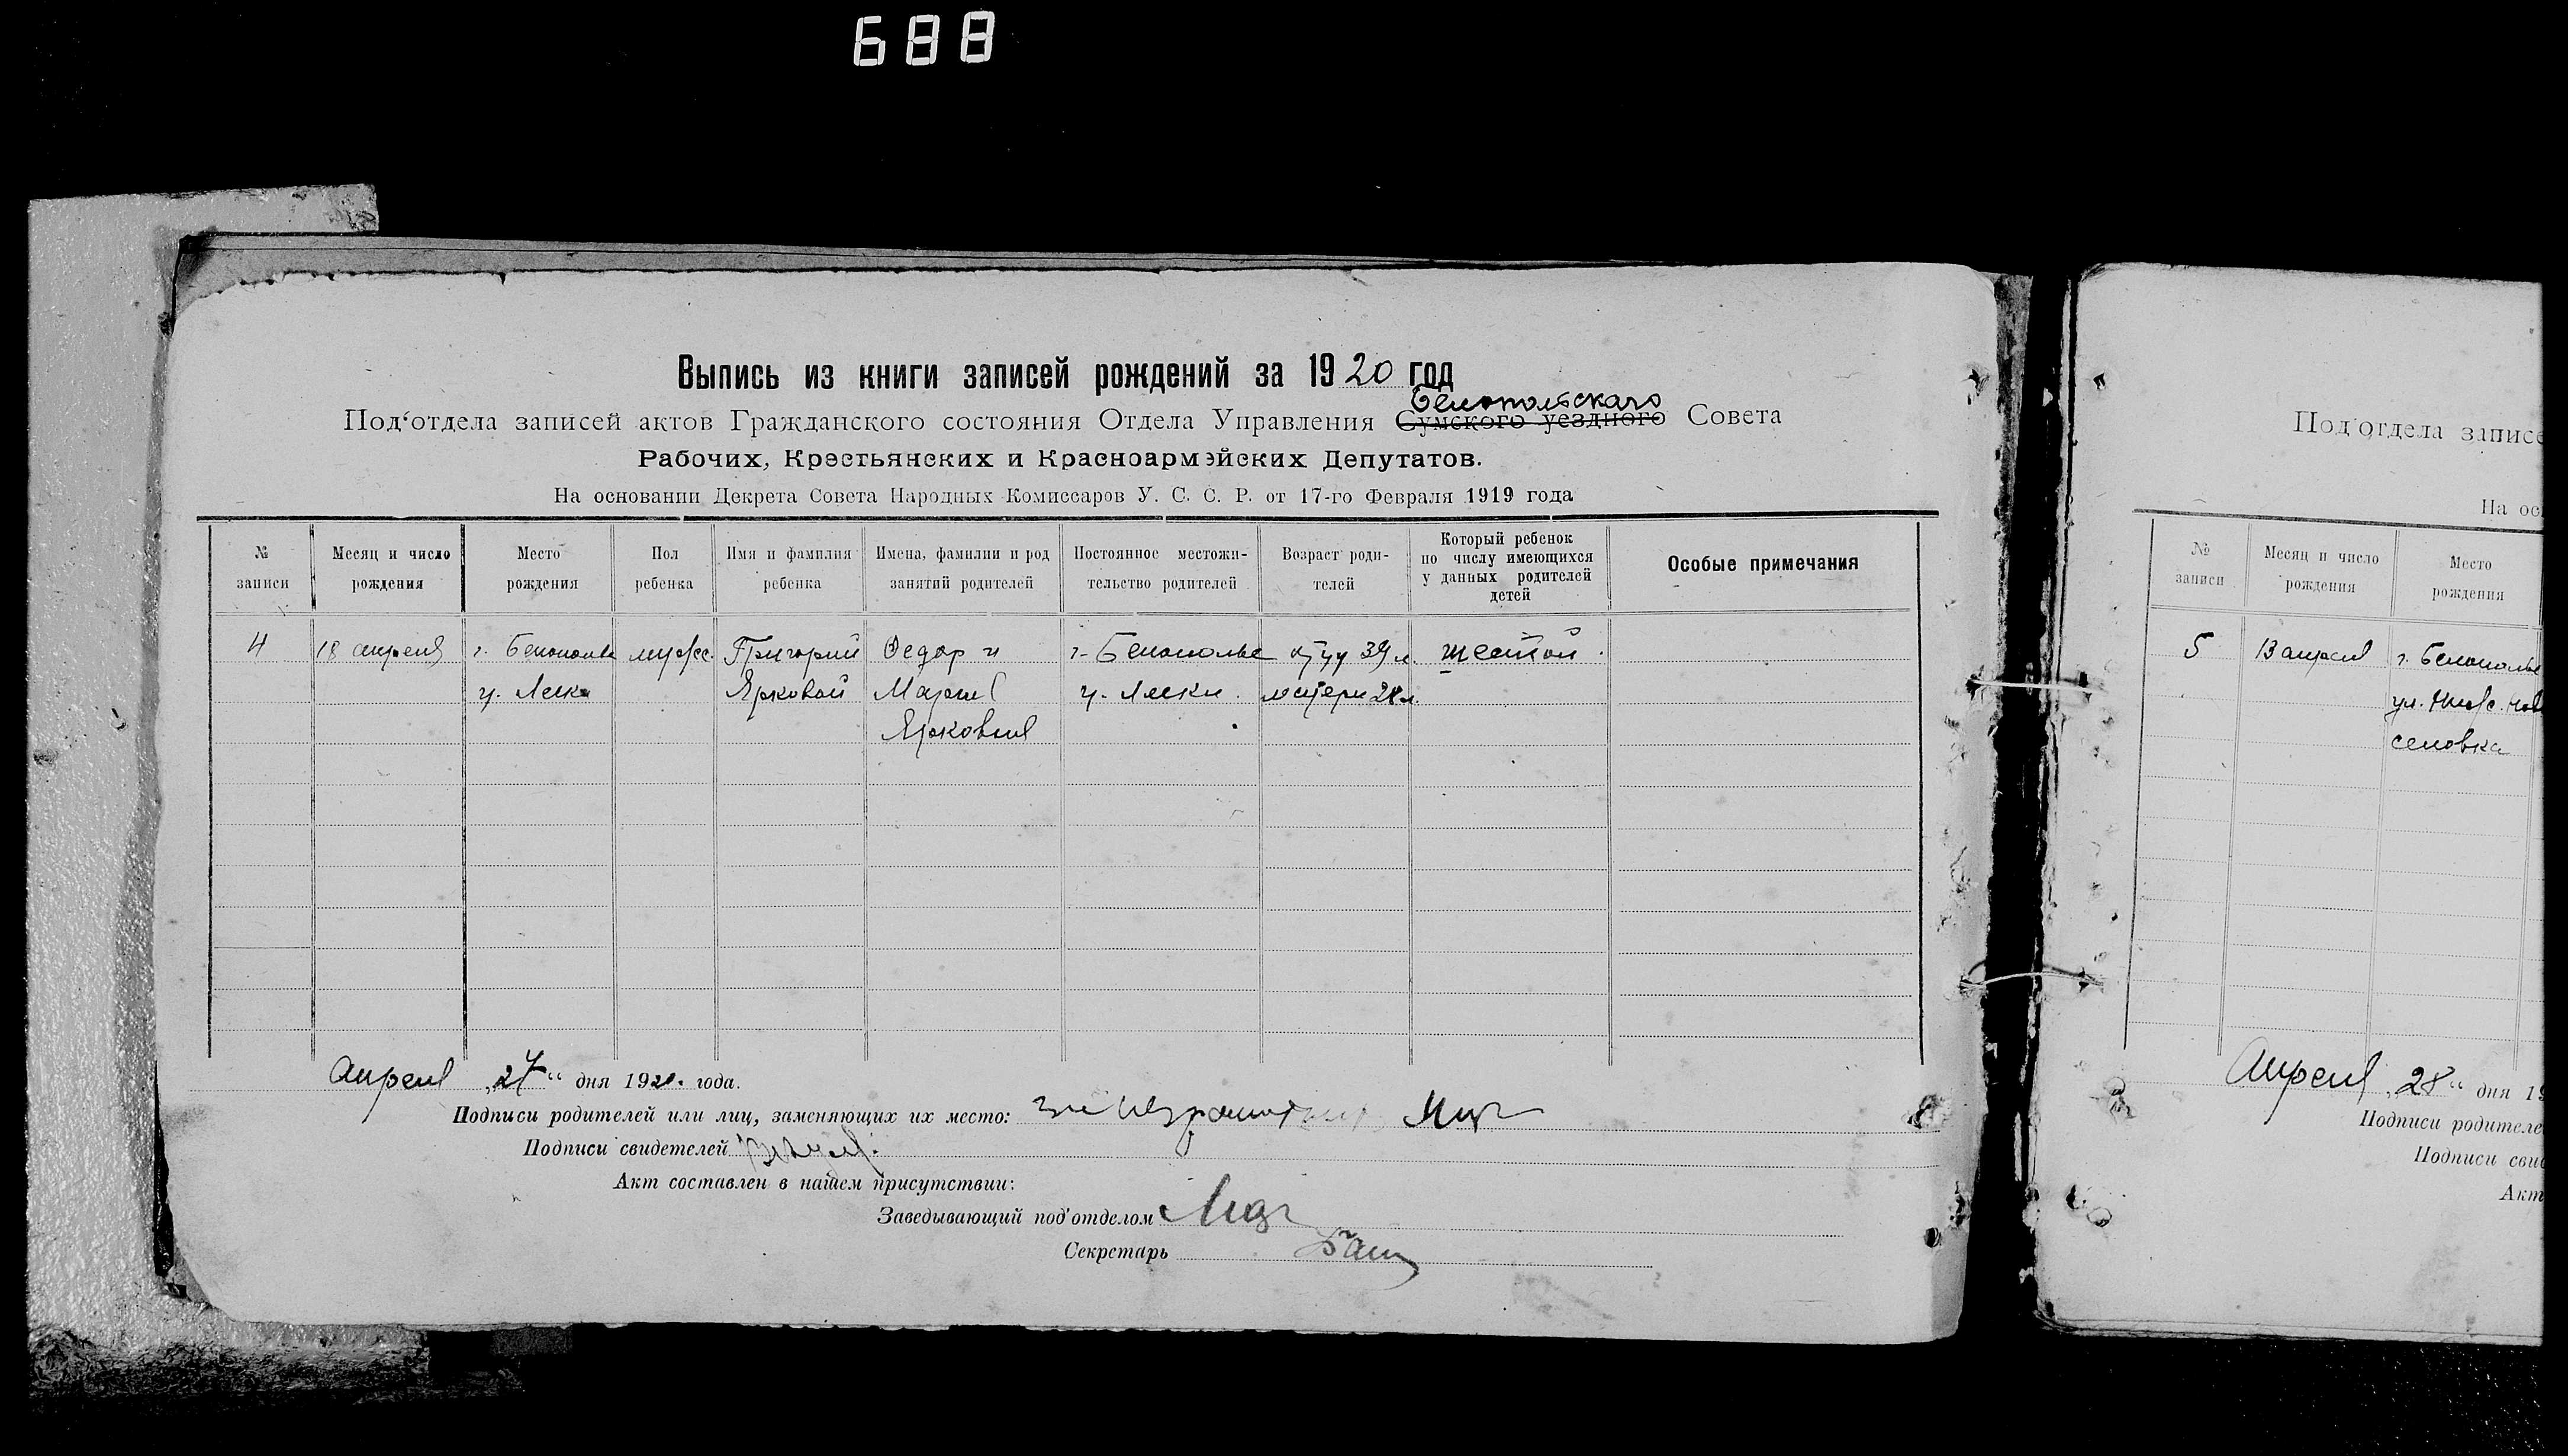 688
Выпись из книги записей рождений за 1920 год
Белопольскаго
Под‘отдела записей актов Гражданского состояния Отдела Управления Сумского уездного Совета
Рабочих, Крестьянских и Красноармейских Депутатов.
На основании Декрета Совета Народных Комиссаров У. С. С. Р. от 17-го Февраля 1919 года
№ записи
Месяц и число рождения
Место рождения
Пол ребенка
Имя и фамилия ребенка
Имена, фамилии и род занятий родителей
Постоянное местожительство родителей
Возраст родителей
Который ребенок по числу имеющихся у данных родителей детей
Особые примечания
4 18 апреля г. Белополье муж. Григорий Федор и г. Белополье отцу 39 л. шестой.
Ярковой Мария ч. Лески. матери 28 л.
Ярковыя
Апреля „27“ дня 1920. года.
Подписи родителей или лиц, заменяющих их место: за неграмотных
Подписи свидетелей
Акт составлен в нашем присутствии:
Заведывающий под‘отделом
Секретарь
Под‘отдела записе
На ос
№ записи
Месяц и число рождения
Место рождения
5 13 апреля г. Белополье
ул.
Апреля „28“ дня 19
Подписи родителе
Подписи сви
Акт